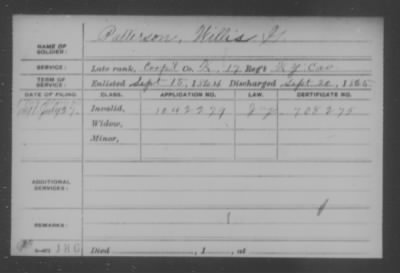 NAME OF SOLDIER: Patterson, Willis
SERVICE: Late rank, Corp'l Co. 17 Reg't Ky Cav
TERM OF SERVICE: Enlisted Sept 15, 1864 Discharged Sept 20, 1865
DATE OF FILING. CLASS. APPLICATION NO. LAW. CERTIFICATE NO.
Invalid, 1042279 708275
Widow,
Minor,
ADDITIONAL SERVICES:
REMARKS:
Died , 1 , at